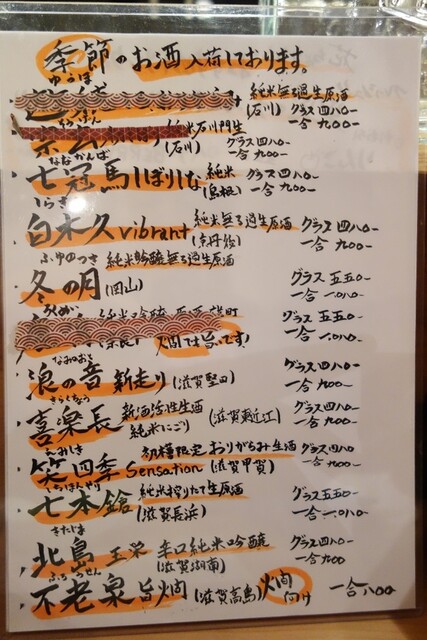 季節のお酒入荷しております。
ゆうほ
純米無ろ過生原酒
(石川) グラス四八〇-
一合 九〇〇-
純米石川門生
(石川) グラス四八〇-
一合 九〇〇-
ななかんば
七冠馬しぼりしな 純米 グラス四八〇-
(島根) 一合 九〇〇-
しらき
白木久 vibrant 純米無ろ過生原酒 グラス四八〇-
(京丹後) 一合 九〇〇-
ふゆのつき 純米吟醸無ろ過生原酒
冬の月 (岡山) グラス五五〇-
一合 一、〇八〇-
雄町 グラス五五〇-
(奈良) 燗でも旨いです 一合 一、〇八〇-
なみのおと
浪の音 新走り (滋賀堅田) グラス四八〇-
一合 九〇〇-
きらくちょう
喜楽長 新酒活性生酒 (滋賀東近江) グラス四八〇-
純米にごり 一合 九〇〇-
えみしき 初槽限定おりがらみ生酒 グラス四八〇-
笑四季 Sensation (滋賀甲賀) 一合 九〇〇-
しちほんやり
七本鎗 純米搾りたて生原酒 グラス五五〇-
(滋賀長浜) 一合 一、〇八〇-
きたじま
北島 玉栄 辛口純米吟醸 グラス四八〇-
(滋賀湖南) 一合 九〇〇
ふろうせん
不老泉 旨燗 (滋賀高島) 燗向け 一合 八〇〇